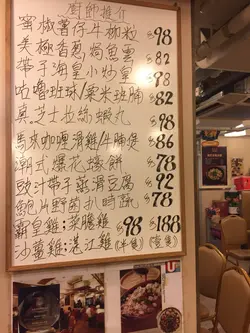 廚師推介
蜜椒薯仔牛柳粒 $98
美極香蔥焗魚雲 $82
帶子海皇小炒皇 $98
咕嚕班球/粟米班腩 $82
真芝士拉絲蝦丸 $98
馬來咖喱滑雞/牛腩煲 $86
潮式爆花蠔餅 $78
豉汁帶子蒸滑豆腐 $92
鮑片野菌扒時蔬 $78
霸皇雞;菜膽雞 $98 $188
沙薑雞;湛江雞 (半隻) (壹隻)